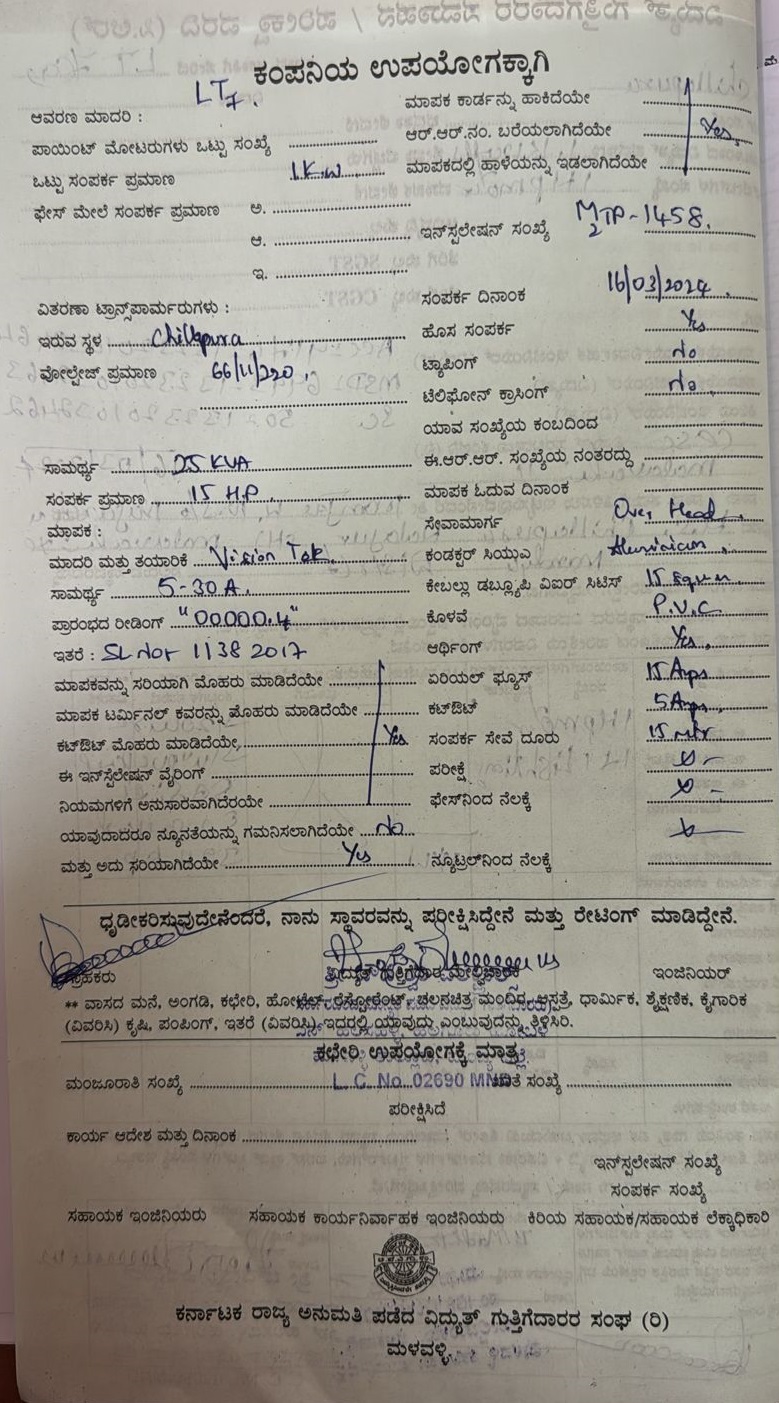 ಕಂಪನಿಯ ಉಪಯೋಗಕ್ಕಾಗಿ
LT7.
ಆವರಣ ಮಾದರಿ :
ಮಾಪಕ ಕಾರ್ಡನ್ನು ಹಾಕಿದೆಯೇ
ಪಾಯಿಂಟ್ ಮೋಟರುಗಳು ಒಟ್ಟು ಸಂಖ್ಯೆ
ಆರ್.ಆರ್.ನಂ. ಬರೆಯಲಾಗಿದೆಯೇ Yes.
ಒಟ್ಟು ಸಂಪರ್ಕ ಪ್ರಮಾಣ 1K.W
ಮಾಪಕದಲ್ಲಿ ಹಾಳೆಯನ್ನು ಇಡಲಾಗಿದೆಯೇ
ಫೇಸ್ ಮೇಲೆ ಸಂಪರ್ಕ ಪ್ರಮಾಣ ಅ.
ಆ.
ಇನ್‌ಸ್ಟಲೇಷನ್ ಸಂಖ್ಯೆ M2TP-1458.
ಇ.
ವಿತರಣಾ ಟ್ರಾನ್ಸ್‌ಪಾರ್ಮರುಗಳು :
ಸಂಪರ್ಕ ದಿನಾಂಕ 16/03/2024.
ಇರುವ ಸ್ಥಳ Chillapura
ಹೊಸ ಸಂಪರ್ಕ Yes
ವೋಲ್ಟೇಜ್ ಪ್ರಮಾಣ 66/11/220.
ಟ್ಯಾಪಿಂಗ್ no
ಟೆಲಿಫೋನ್ ಕ್ರಾಸಿಂಗ್ no
ಯಾವ ಸಂಖ್ಯೆಯ ಕಂಬದಿಂದ
ಸಾಮರ್ಥ್ಯ 25 KVA
ಈ.ಆರ್.ಆರ್. ಸಂಖ್ಯೆಯ ನಂತರದ್ದು
ಸಂಪರ್ಕ ಪ್ರಮಾಣ 15 H.P.
ಮಾಪಕ ಓದುವ ದಿನಾಂಕ
ಮಾಪಕ :
ಸೇವಾಮಾರ್ಗ Over Head.
ಮಾದರಿ ಮತ್ತು ತಯಾರಿಕೆ Vision Tek.
ಕಂಡಕ್ಟರ್ ಸಿಯುಎ
ಸಾಮರ್ಥ್ಯ 5-30A.
ಕೇಬಲ್ಲು ಡಬ್ಲ್ಯೂಪಿ ವಿಐರ್ ಸಿಟಿಸ್ 15
ಪ್ರಾರಂಭದ ರೀಡಿಂಗ್ "00000.4"
ಕೊಳವೆ P.V.C.
ಇತರೆ : SL No 1138 2017
ಆರ್ಥಿಂಗ್ Yes.
ಮಾಪಕವನ್ನು ಸರಿಯಾಗಿ ಮೊಹರು ಮಾಡಿದೆಯೇ
ಏರಿಯಲ್ ಫ್ಯೂಸ್ 15 Amps.
ಮಾಪಕ ಟರ್ಮಿನಲ್ ಕವರನ್ನು ಮೊಹರು ಮಾಡಿದೆಯೇ
ಕಟ್‌ಔಟ್ 5 Amps.
ಕಟ್‌ಔಟ್ ಮೊಹರು ಮಾಡಿದೆಯೇ, Yes
ಸಂಪರ್ಕ ಸೇವೆ ದೂರು 15 mtr
ಈ ಇನ್‌ಸ್ಟಲೇಷನ್ ವೈರಿಂಗ್
ಪರೀಕ್ಷೆ
ನಿಯಮಗಳಿಗೆ ಅನುಸಾರವಾಗಿದೆರಯೇ
ಫೇಸ್‌ನಿಂದ ನೆಲಕ್ಕೆ
ಯಾವುದಾದರೂ ನ್ಯೂನತೆಯನ್ನು ಗಮನಿಸಲಾಗಿದೆಯೇ No.
ಮತ್ತು ಅದು ಸರಿಯಾಗಿದೆಯೇ Yes
ನ್ಯೂಟ್ರಲ್‌ನಿಂದ ನೆಲಕ್ಕೆ
ಧೃಡೀಕರಿಸುವುದೇನೆಂದರೆ, ನಾನು ಸ್ಥಾವರವನ್ನು ಪರೀಕ್ಷಿಸಿದ್ದೇನೆ ಮತ್ತು ರೇಟಿಂಗ್ ಮಾಡಿದ್ದೇನೆ.
ಗ್ರಾಹಕರು ವಿದ್ಯುತ್ ಗುತ್ತಿಗೆದಾರ ಮೇಲ್ವಿಚಾರಕ ಇಂಜಿನಿಯರ್
** ವಾಸದ ಮನೆ, ಅಂಗಡಿ, ಕಛೇರಿ, ಹೋಟೆಲ್, ರೆಸ್ಟೋರೆಂಟ್, ಚಲನಚಿತ್ರ ಮಂದಿರ, ಆಸ್ಪತ್ರೆ, ಧಾರ್ಮಿಕ, ಶೈಕ್ಷಣಿಕ, ಕೈಗಾರಿಕ
(ವಿವರಿಸಿ) ಕೃಷಿ, ಪಂಪಿಂಗ್, ಇತರೆ (ವಿವರಿಸಿ) ಇದರಲ್ಲಿ ಯಾವುದು ಎಂಬುವುದನ್ನು ತಿಳಿಸಿರಿ.
ಕಛೇರಿ ಉಪಯೋಗಕ್ಕೆ ಮಾತ್ರ
ಮಂಜೂರಾತಿ ಸಂಖ್ಯೆ L.C.No.02690 ಸಂಖ್ಯೆ
ಪರೀಕ್ಷಿಸಿದೆ
ಕಾರ್ಯ ಆದೇಶ ಮತ್ತು ದಿನಾಂಕ
ಇನ್‌ಸ್ಟಲೇಷನ್ ಸಂಖ್ಯೆ
ಸಂಪರ್ಕ ಸಂಖ್ಯೆ
ಸಹಾಯಕ ಇಂಜಿನಿಯರು ಸಹಾಯಕ ಕಾರ್ಯನಿರ್ವಾಹಕ ಇಂಜಿನಿಯರು ಕಿರಿಯ ಸಹಾಯಕ/ಸಹಾಯಕ ಲೆಕ್ಕಾಧಿಕಾರಿ
ಕರ್ನಾಟಕ ರಾಜ್ಯ ಅನುಮತಿ ಪಡೆದ ವಿದ್ಯುತ್ ಗುತ್ತಿಗೆದಾರರ ಸಂಘ (ರಿ)
ಮಳವಳ್ಳಿ.